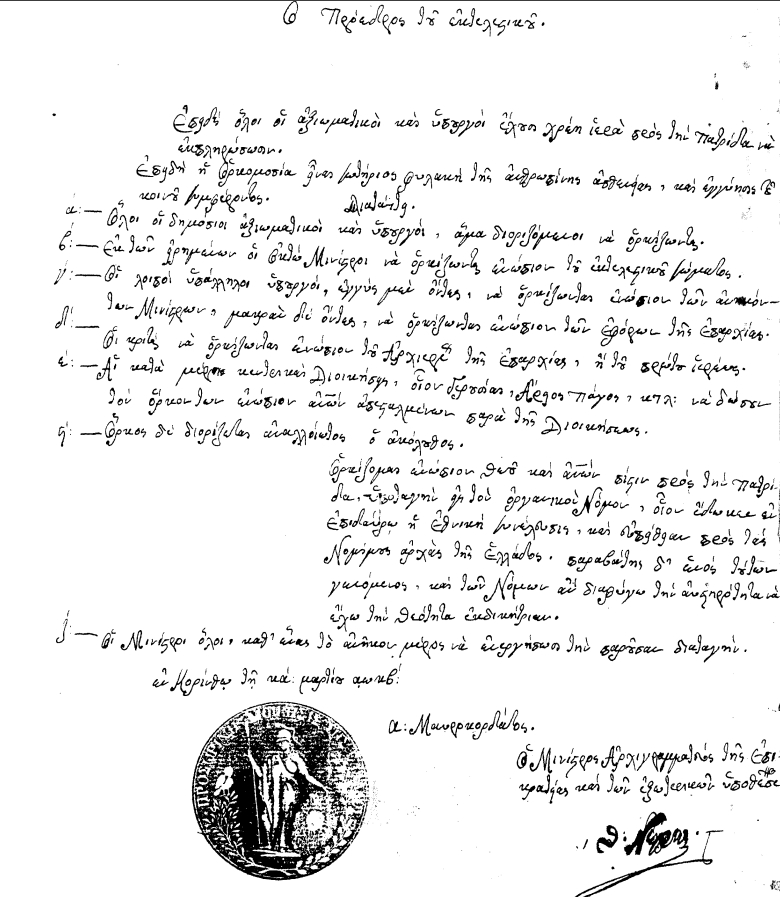 Ὁ Πρόεδρος τοῦ ἐκτελεστικοῦ.
Ἐπειδὴ ὅλοι οἱ ἀξιωματικοὶ καὶ ὑπουργοὶ ἔχουν χρέη ἱερὰ πρὸς τὴν Πατρίδα νὰ
ἐκπληρώσωσιν.
Ἐπειδὴ ἡ ὁρκομοσία εἶναι σωτήριος φυλακὴ τῆς ἀνθρωπίνης ἀσθενείας, καὶ ἐγγύησις τοῦ
κοινοῦ συμφέροντος.
Διατάττει
α: — Ὅλοι οἱ δημόσιοι ἀξιωματικοὶ καὶ ὑπουργοὶ, ἅμα διοριζόμενοι νὰ ὁρκίζωνται.
β: — Ἐκ τῶν εἰρημένων οἱ ὀκτὼ Μινίστροι νὰ ὁρκίζωνται ἐνώπιον τοῦ ἐκτελεστικοῦ σώματος.
γ: — Οἱ λοιποὶ ὑπάλληλοι ὑπουργοὶ, ἐγγὺς μὲν ὄντες, νὰ ὁρκίζωνται ἐνώπιον τῶν
των Μινίστρων, μακρὰν δὲ ὄντες, νὰ ὁρκίζωνται ἐνώπιον τῶν Ἐφόρων τῆς Ἐπαρχίας.
δ: — Οἱ κριταὶ νὰ ὁρκίζωνται ἐνώπιον τοῦ Ἀρχιερέως τῆς Ἐπαρχίας, ἢ τοῦ πρώτου ἱερέως.
ε: — Αἱ κατὰ μέρος κεντρικαὶ Διοικήσεις, οἷον Γερουσίαι, Ἄρειος Πάγος, κτλ: νὰ δώσουν
τὸν ὅρκον των ἐνώπιον αὐτῶν ἀπεσταλμένων παρὰ τῆς Διοικήσεως.
ϛ: — Ὅρκος δὲ διορίζεται ἀναλλοίωτος ὁ ἀκόλουθος.
Ὁρκίζομαι ἐνώπιον Θεοῦ καὶ πίστιν πρὸς τὴν Πατρί-
δα, ὑποταγὴν εἰς τὸν ὀργανικὸν Νόμον, οἷον ἔδωκεν ἐν
Ἐπιδαύρῳ ἡ Ἐθνικὴ συνέλευσις, καὶ εὐπείθειαν πρὸς τὰς
Νομίμους ἀρχὰς τῆς Ἑλλάδος. παραβάτης δ' ἑνὸς τούτων
γενόμενος, καὶ τῶν Νόμων ἂν διαφύγω τὴν αὐστηρότητα νὰ
ἔχω τὴν Θεότητα ἐκδικήτριαν.
ζ: — Οἱ Μινίστροι ὅλοι, καθ' ἕνας τὸ ἀνῆκον μέρος νὰ ἐνεργήσωσι τὴν παροῦσαν διαταγήν.
ἐν Κορίνθῳ τῇ κα: μαρτίου αωκβ:
α: Μαυροκορδάτος.
Ὁ Μινίστρος Ἀρχιγραμματεὺς τῆς Ἐπι-
κρατείας καὶ τῶν ἐξωτερικῶν ὑποθέσε
Θ: Νέγρης